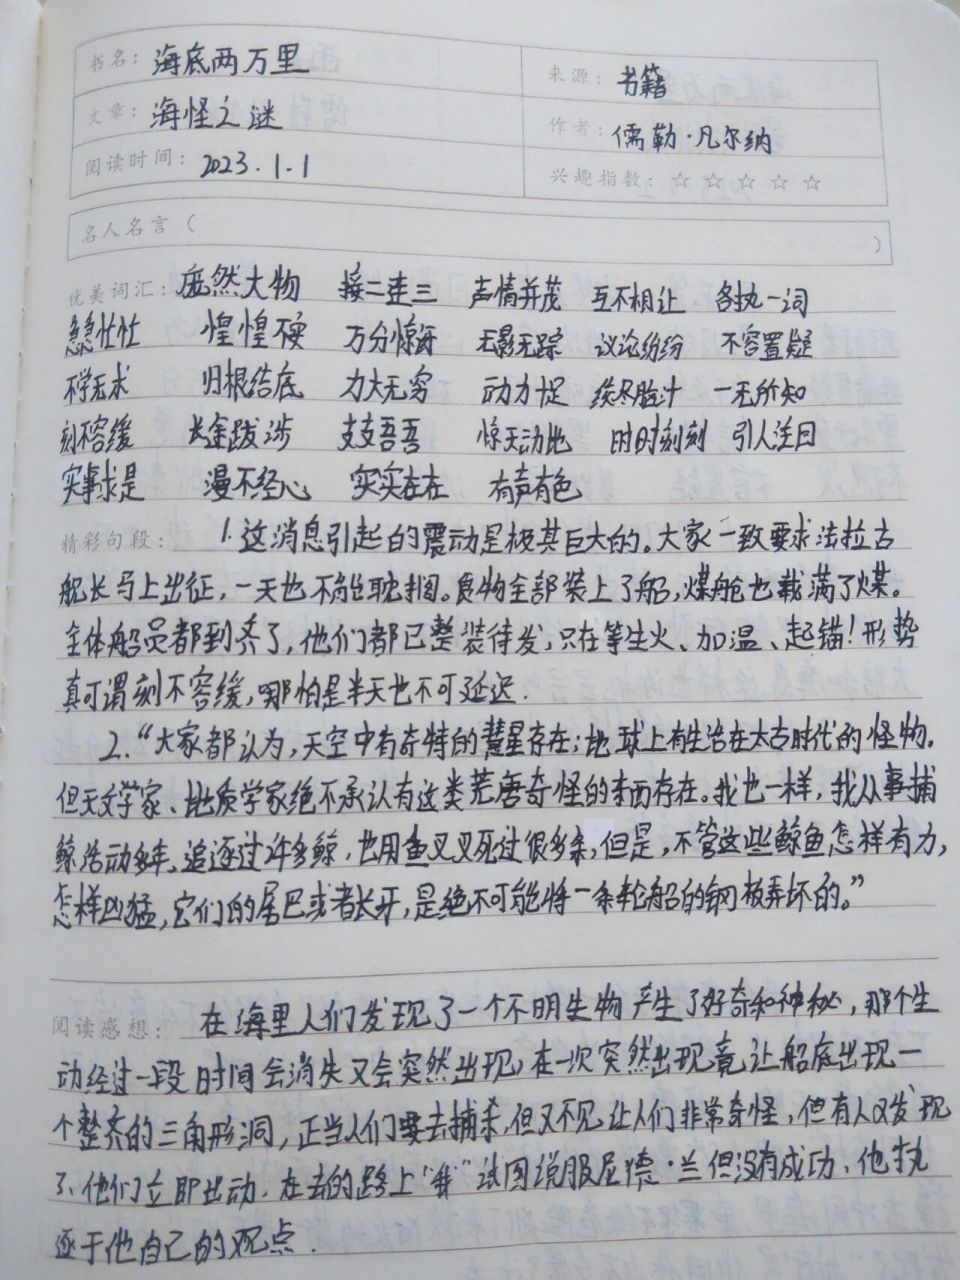 书名：海底两万里 来源：书籍
文章：海怪之谜 作者：儒勒·凡尔纳
阅读时间：2023.1.1 兴趣指数：☆ ☆ ☆ ☆ ☆
名人名言（ ）
优美词汇：庞然大物 接二连三 声情并茂 互不相让 各执一词
急急忙忙 惶惶不安 万分惊讶 无影无踪 议论纷纷 不容置疑
不学无术 归根结底 力大无穷 动力十足 绞尽脑汁 一无所知
刻不容缓 长途跋涉 支支吾吾 惊天动地 时时刻刻 引人注目
实事求是 漫不经心 实实在在 有声有色
精彩句段：1.这消息引起的震动是极其巨大的。大家一致要求法拉古
舰长马上出征，一天也不能耽搁。食物全部装上了船，煤舱也载满了煤。
全体船员都到齐了，他们都已整装待发，只在等生火、加温、起锚！形势
真可谓刻不容缓，哪怕是半天也不可延迟.
2.“大家都认为，天空中有奇特的彗星存在；地球上有生活在太古时代的怪物.
但天文学家、地质学家绝不承认有这类荒唐奇怪的东西存在。我也一样，我从事捕
鲸活动多年。追逐过许多鲸，也用鱼叉叉死过很多条，但是，不管这些鲸鱼怎样有力，
怎样凶猛，它们的尾巴或者长牙，是绝不可能将一条轮船的钢板弄坏的。”
阅读感想：在海里人们发现了一个不明生物产生了好奇和神秘，那个生
动经过一段时间会消失又会突然出现，在一次突然出现竟让船底出现一
个整齐的三角形洞，正当人们要去捕杀，但又不见让人们非常奇怪，但有人又发现
了、他们立即出动.在去的路上“我”试图说服尼德·兰但没有成功、他执
逐于他自己的观点.